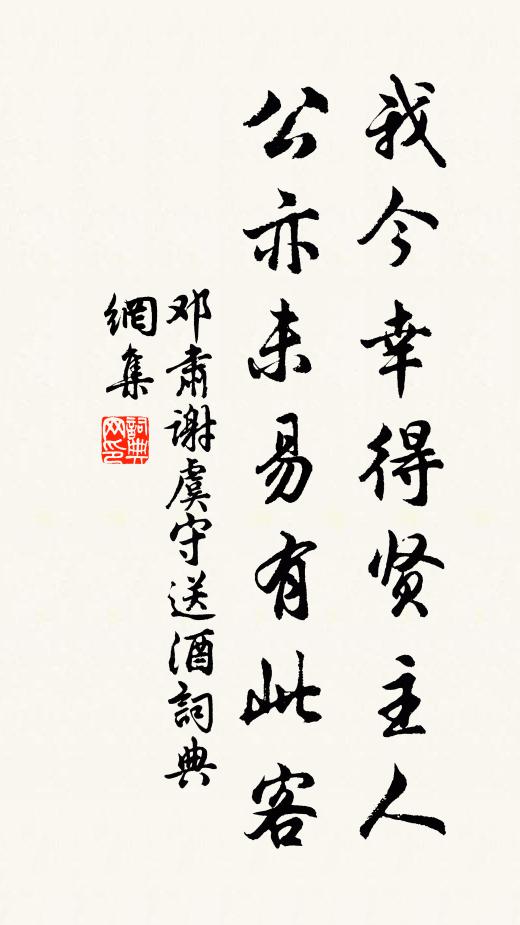 我今幸得贤主人
公亦未易有此客
邓肃谢虞守送酒詞典
網集
詞典
网印